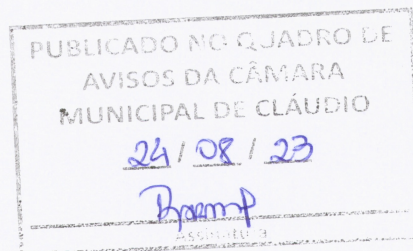 PUBLICADO NO QUADRO DE
AVISOS DA CÂMARA
MUNICIPAL DE CLÁUDIO
24 / 08 / 23
Assinatura